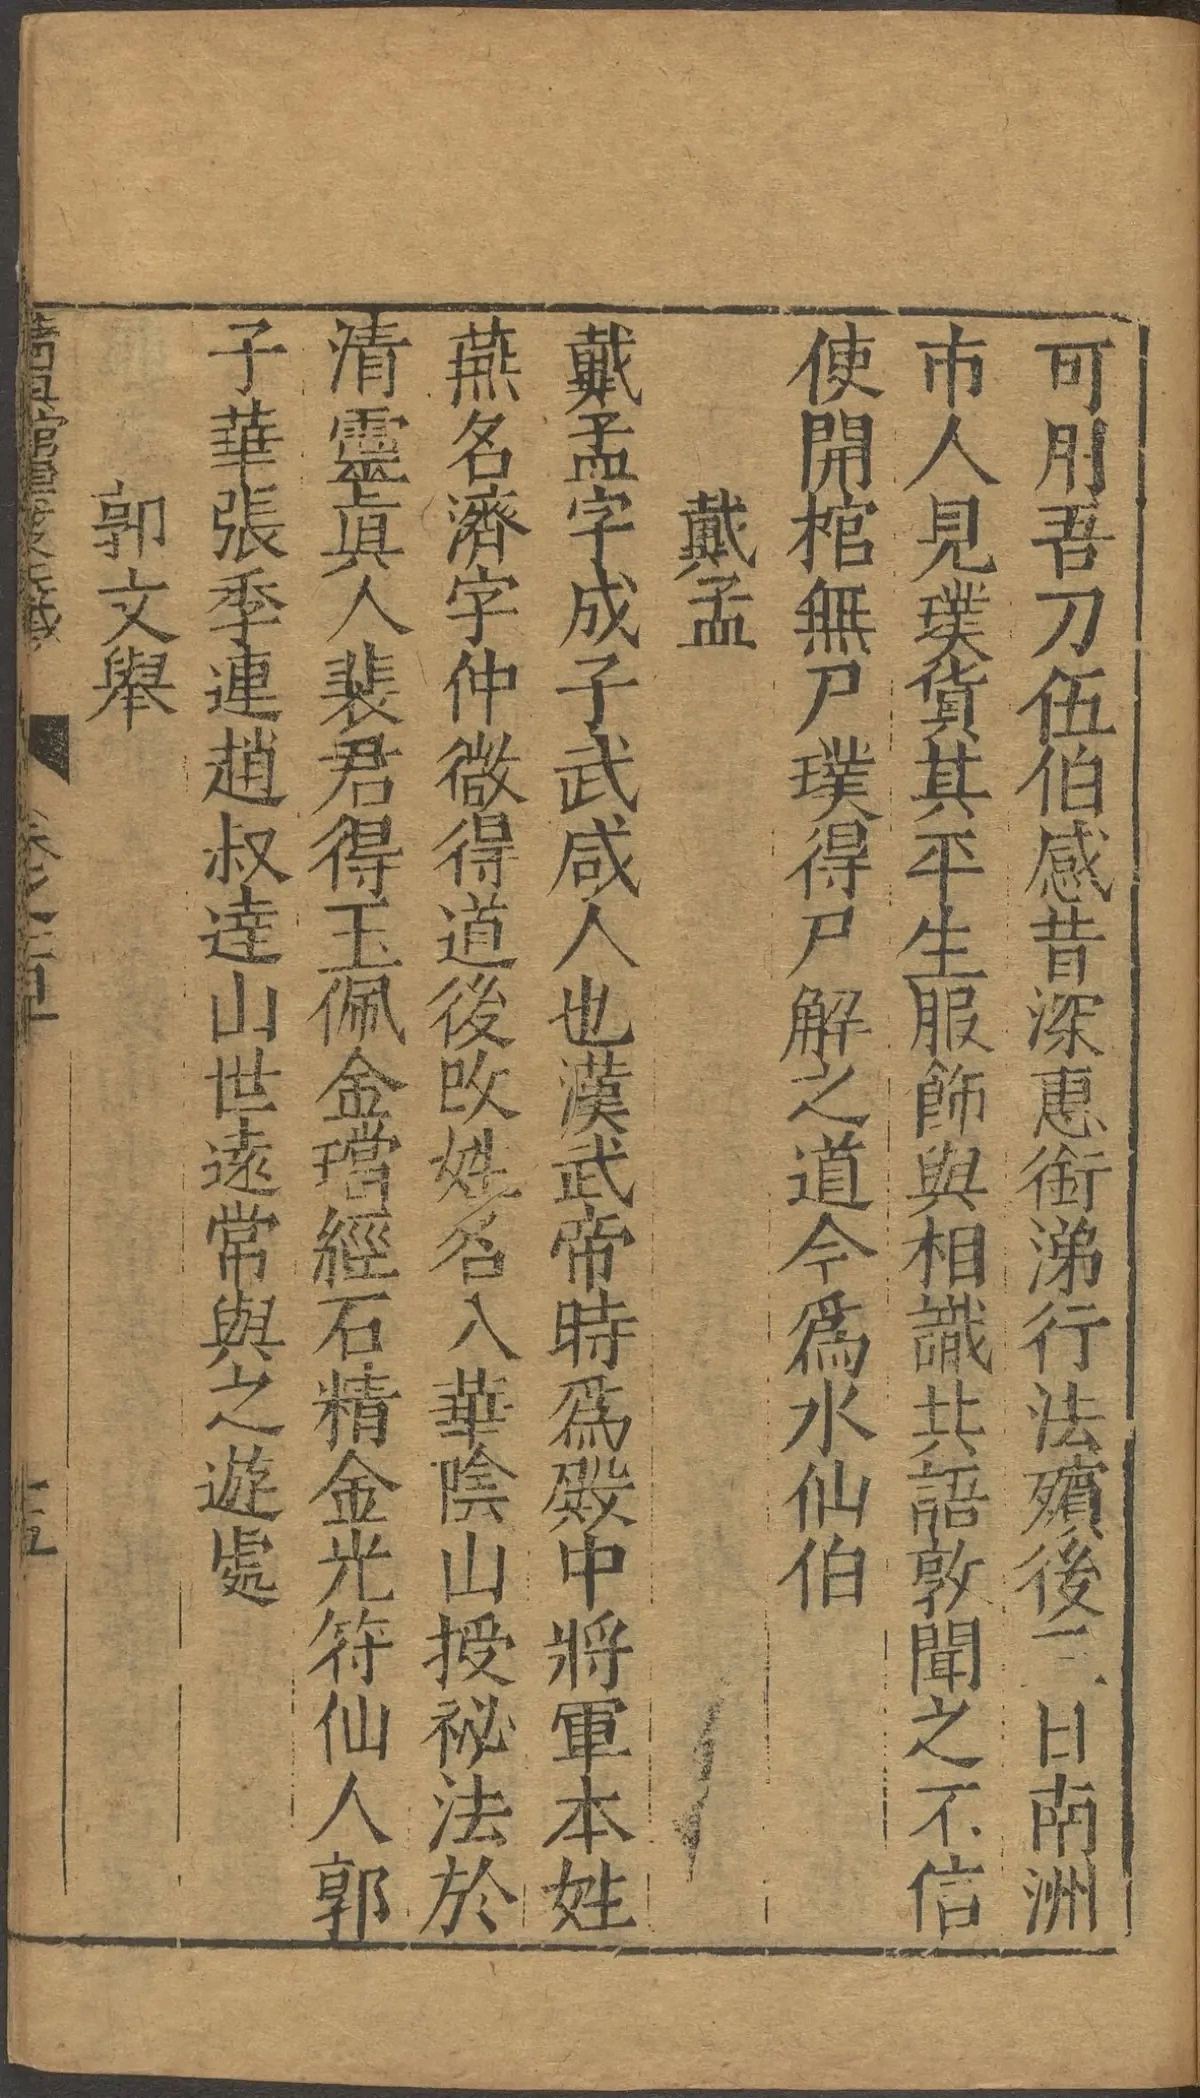 可用吾刀伍伯感昔深惠銜涕行法殯後三日南洲
市人見璞貨其平生服飾與相識共語敦聞之不信
使開棺無尸璞得尸解之道今爲水仙伯
戴孟
戴孟字成子武咸人也漢武帝時爲殿中將軍本姓
燕名濟字仲微得道後改姓名入華陰山授祕法於
清靈眞人裴君得玉佩金璫經石精金光符仙人郭
子華張季連趙叔達山世遠常與之遊處
郭文舉
卷
十五